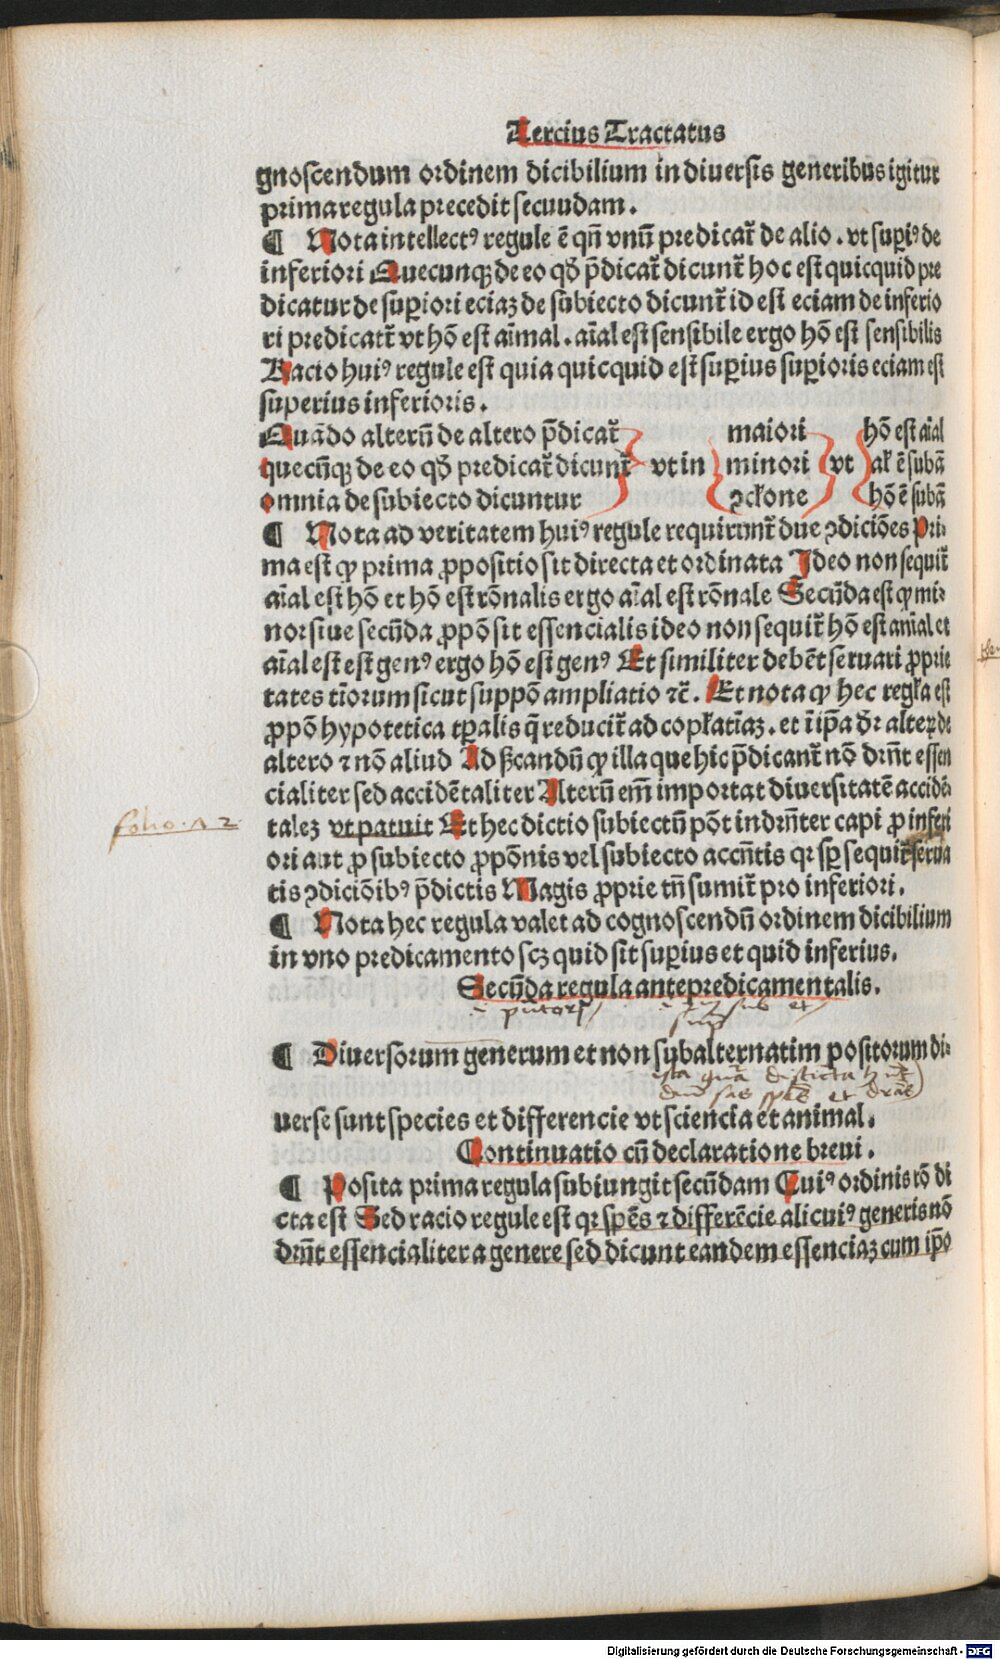 Tercius Tractatus
gnoscendum ordinem dicibilium in diuersis generibus igitur
prima regula precedit secuudam.
¶ Nota intellectꝰ regule ē qn̄ vnū predicat̄ de alio. vt supi̱ꝰ de
inferiori Quecunqꝫ de eo qd̄ p̄dicat̄ dicunt̄ hoc est quicquid pre
dicatur de superiori eciaꝫ de subiecto dicunt̄ id est eciam de inferio
ri predicatt̄ vt hō est aīmal. aīal est sensibile ergo hō est sensibilis
Racio huiꝰ regule est quia quicquid est suꝑius suꝑioris eciam est
superius inferioris.
Quādo alterū de altero p̄dicat̄ maiori hō est aīal
quecūqꝫ de eo qd̄ predicat̄ dicunt̄ vt in minori vt aīal ē subā
omnia de subiecto dicuntur ꝯclone hō ē subā
¶ Nota ad veritatem huiꝰ regule requirunt̄ due ꝯdiciōes Pri-
ma est ꝙ prima ꝓpositio sit directa et ordinata Ideo non sequit̄
aīal est hō et hō est rōnalis ergo aīal est rōnale Secūda est ꝙ mi-
nor siue secūda ꝓpō sit essencialis ideo non sequit̄ hō est anīal et
aīal est est genꝰ ergo hō est genꝰ Et similiter debēt seruari ꝓprie
tates tīorum sicut suppō ampliatio ⁊c̄. Et nota ꝙ hec regła est
ꝓpō hypotetica tꝑalis q̄ reducit̄ ad copłatīaꝫ. et ī ip̄a dr̄ alteꝝ de
altero ⁊ nō aliud Ad ßcandū ꝙ illa que hic p̄dicant̄ nō drn̄t essen
cialiter sed accidētaliter Alterū em̄ importat diuersitatē accidē-
taleꝫ vt patuit Et hec dictio subiectū pōt indrn̄ter capi ꝓ inferi
folio . 12
ori aut ꝓ subiecto ꝓpōnis vel subiecto accn̄tis qꝛ sꝑ sequit̄ serua
tis ꝯdiciōibꝰ p̄dictis Magis ꝓprie tn̄ sumit̄ pro inferiori.
¶ Nota hec regula valet ad cognoscendū ordinem dicibilium
in vno predicamento scꝫ quid sit suꝑius et quid inferius.
Secūda regula antepredicamentalis.
¶ Diuersorum generum et non subalternatim positorum di-
uerse sunt species et differencie vt sciencia et animal.
Continuatio cū declaratione breui.
¶ Posita prima regula subiungit secūdam Cuiꝰ ordinis rō di
cta est Sed racio regule est qꝛ spēs ⁊ differēcie alicuiꝰ generis nō
drn̄t essencialiter a genere sed dicunt eandem essenciaꝫ cum ip̄o
Digitalisierung gefördert durch die Deutsche Forschungsgemeinschaft - DFG